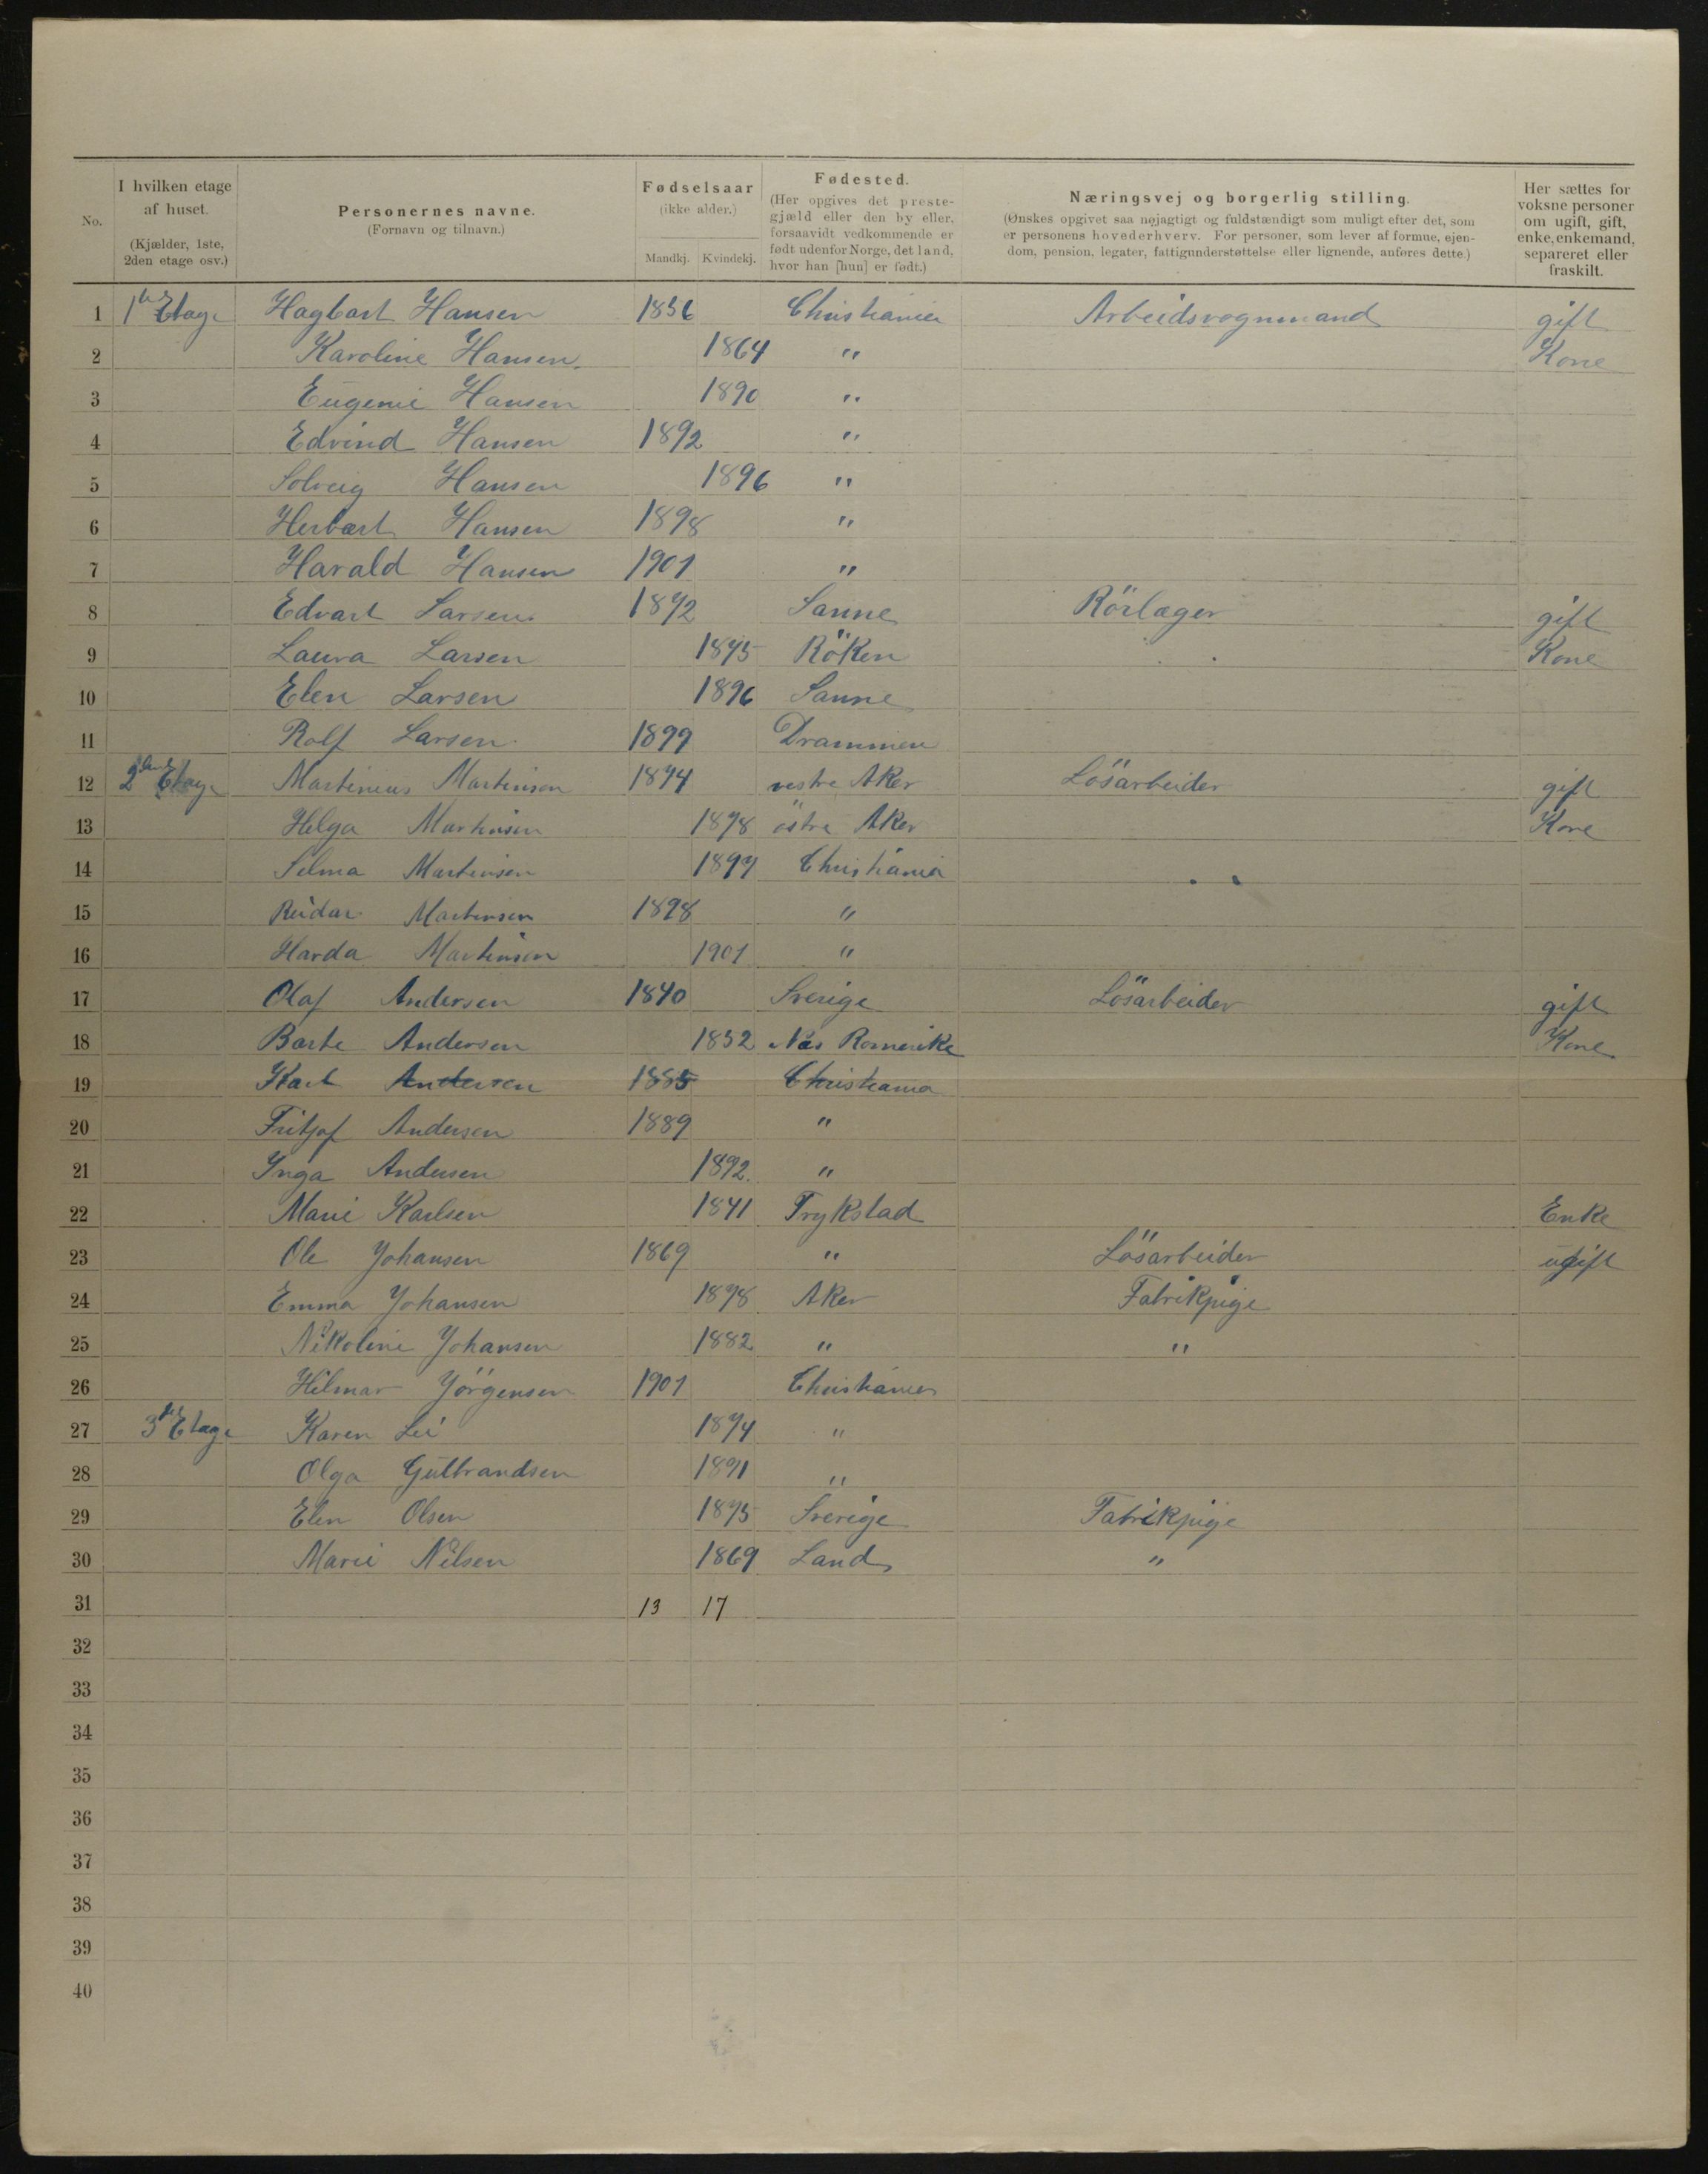 No. I hvilken etage af huset. (Kjælder, 1ste, 2den etage osv.) Personernes navne. (Fornavn og tilnavn.) Fødselsaar (ikke alder.) Mandkj. Kvindekj. Fødested. (Her opgives det prestegjæld eller den by eller, forsaavidt vedkommende er født udenfor Norge, det land, hvor han [hun] er født.) Næringsvej og borgerlig stilling. (Ønskes opgivet saa nøjagtigt og fuldstændigt som muligt efter det, som er personens hovederhverv. For personer, som lever af formue, ejendom, pension, legater, fattigunderstøttelse eller lignende, anføres dette.) Her sættes for voksne personer om ugift, gift, enke, enkemand, separeret eller fraskilt.
1 1ste Etage Hagbart Hansen 1856 Christiania Arbeidsvognmand gift
2 Karoline Hansen. 1864 " Kone
3 Eugenie Hansen 1890 "
4 Edvind Hansen 1892 "
5 Solveig Hansen 1896 "
6 Herbert Hansen 1898 "
7 Harald Hansen 1901 "
8 Edvart Larsen 1872 Sanne Rörlæger gift
9 Laura Larsen 1875 Röken Kone
10 Elen Larsen 1896 Sanne
11 Rolf Larsen 1899 Drammen
12 2den Etage Martinius Martinsen 1874 vestre Aker Lösarbeider gift
13 Helga Martinsen 1878 östre Aker Kone
14 Selma Martinsen 1897 Christiania
15 Reidar Martinsen 1898 "
16 Harda Martinsen 1901 "
17 Olaf Andersen 1840 Sverige Lösarbeider gift
18 Barte Andersen 1852 Næs Romerike Kone
19 Karl Andersen 1885 Christiania
20 Fritjof Andersen 1889 "
21 Inga Andersen 1892. "
22 Marie Karlsen 1841 Trykstad Enke
23 Ole Johansen 1869 " Lösarbeider ugift
24 Emma Johansen 1878 Aker Fabrikpige
25 Nikoline Johansen 1882 " "
26 Hilmar Jörgensen 1901 Christiania
27 3die Etage Karen Lie 1874 "
28 Olga Gulbrandsen 1891 "
29 Elen Olsen 1875 Sverige Fabrikpige
30 Marie Nilsen 1869 Land "
31 13 17
32
33
34
35
36
37
38
39
40